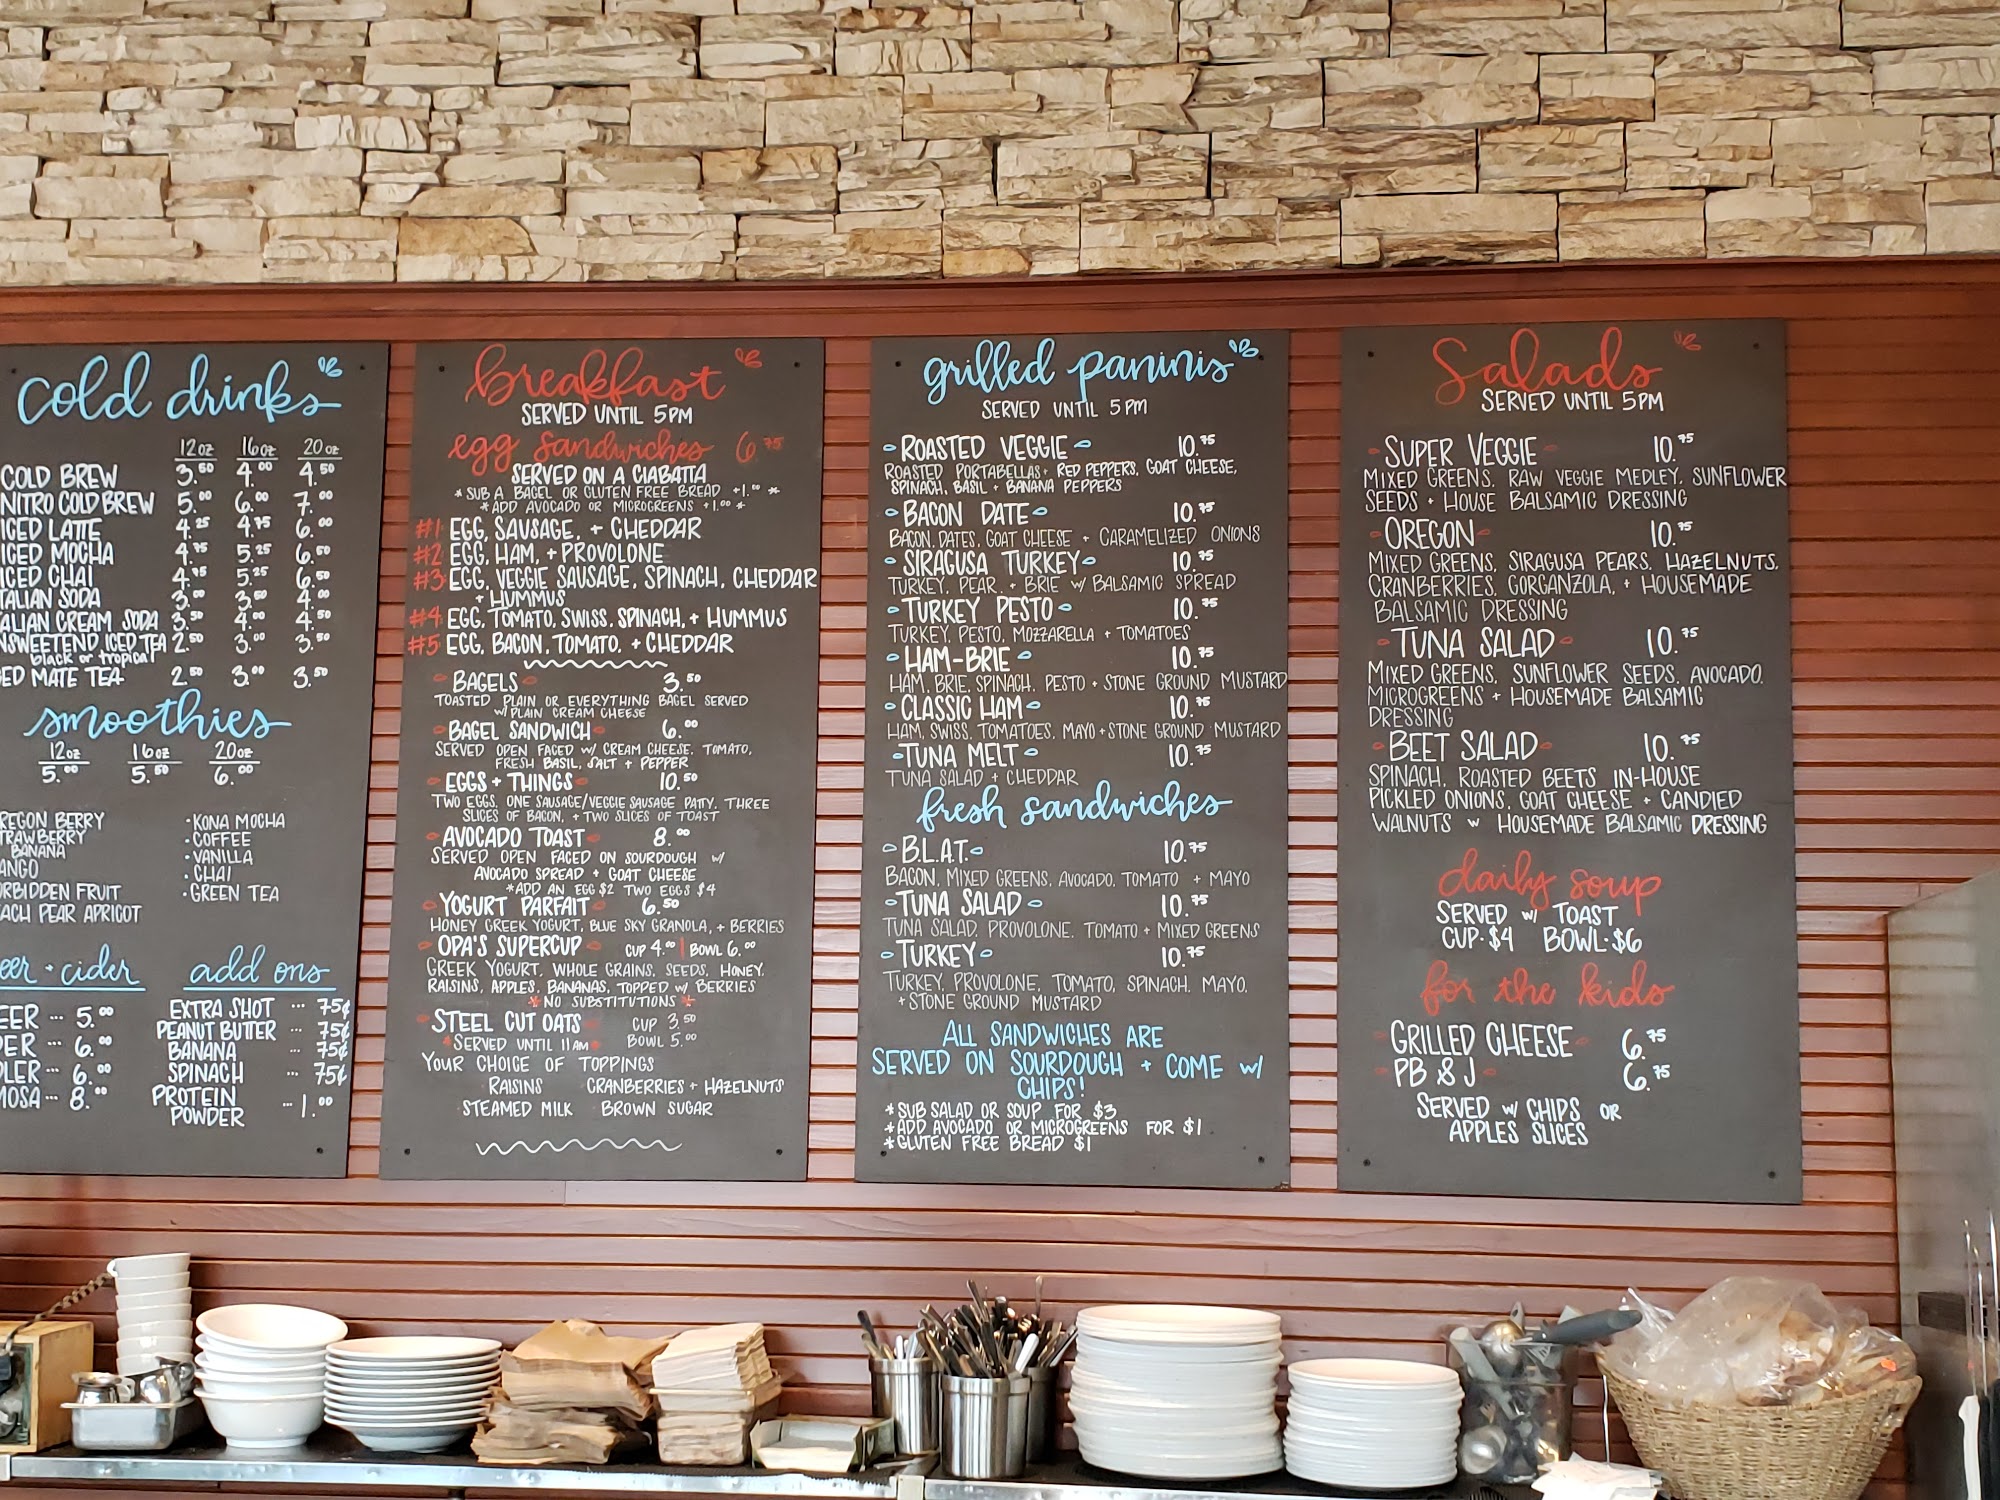 cold drinks
12oz 16oz 20oz
COLD BREW 3.50 4.00 4.50
NITRO COLD BREW 5.00 6.00 7.00
ICED LATTE 4.25 4.75 6.00
ICED MOCHA 4.75 5.25 6.50
ICED CHAI 4.75 5.25 6.50
TALIAN SODA 3.00 3.50 4.00
ALIAN CREAM SODA 3.50 4.00 4.50
NSWEETEND ICED TEA 2.50 3.00 3.50
black or tropical
ED MATE TEA 2.50 3.00 3.50
smoothies
12oz 16oz 20oz
5.00 5.50 6.00
REGON BERRY
TRAWBERRY
BANANA
ANGO
ORBIDDEN FRUIT
EACH PEAR APRICOT
• KONA MOCHA
• COFFEE
• VANILLA
• CHAI
• GREEN TEA
eer + cider
EER ... 5.00
DER ... 6.00
DLER ... 6.00
MOSA ... 8.00
add ons
EXTRA SHOT ... 75¢
PEANUT BUTTER ... 75¢
BANANA ... 75¢
SPINACH ... 75¢
PROTEIN
POWDER ... 1.00
breakfast
SERVED UNTIL 5PM
egg sandwiches 6.75
SERVED ON A CIABATTA
* SUB A BAGEL OR GLUTEN FREE BREAD +1.00 *
* ADD AVOCADO OR MICROGREENS +1.00 *
#1 EGG, SAUSAGE, + CHEDDAR
#2 EGG, HAM, + PROVOLONE
#3 EGG, VEGGIE SAUSAGE, SPINACH, CHEDDAR
+ HUMMUS
#4 EGG, TOMATO, SWISS, SPINACH, + HUMMUS
#5 EGG, BACON, TOMATO, + CHEDDAR
BAGELS 3.50
TOASTED PLAIN OR EVERYTHING BAGEL SERVED
W/ PLAIN CREAM CHEESE
BAGEL SANDWICH 6.00
SERVED OPEN FACED W/ CREAM CHEESE, TOMATO,
FRESH BASIL, SALT + PEPPER
EGGS + THINGS 10.50
TWO EGGS, ONE SAUSAGE/VEGGIE SAUSAGE PATTY, THREE
SLICES OF BACON, + TWO SLICES OF TOAST
AVOCADO TOAST 8.00
SERVED OPEN FACED ON SOURDOUGH W/
AVOCADO SPREAD + GOAT CHEESE
*ADD AN EGG $2 TWO EGGS $4
YOGURT PARFAIT 6.50
HONEY GREEK YOGURT, BLUE SKY GRANOLA, + BERRIES
OPA'S SUPERCUP CUP 4.00 | BOWL 6.00
GREEK YOGURT, WHOLE GRAINS, SEEDS, HONEY,
RAISINS, APPLES, BANANAS, TOPPED W/ BERRIES
*NO SUBSTITUTIONS*
STEEL CUT OATS CUP 3.50
*SERVED UNTIL 11AM* BOWL 5.00
YOUR CHOICE OF TOPPINGS
RAISINS CRANBERRIES + HAZELNUTS
STEAMED MILK BROWN SUGAR
grilled paninis
SERVED UNTIL 5PM
ROASTED VEGGIE 10.75
ROASTED PORTABELLAS + RED PEPPERS, GOAT CHEESE,
SPINACH, BASIL + BANANA PEPPERS
BACON DATE 10.75
BACON, DATES, GOAT CHEESE + CARAMELIZED ONIONS
SIRAGUSA TURKEY 10.75
TURKEY, PEAR, + BRIE W/ BALSAMIC SPREAD
TURKEY PESTO 10.75
TURKEY, PESTO, MOZZARELLA + TOMATOES
HAM-BRIE 10.75
HAM, BRIE, SPINACH, PESTO + STONE GROUND MUSTARD
CLASSIC HAM 10.75
HAM, SWISS, TOMATOES, MAYO + STONE GROUND MUSTARD
TUNA MELT 10.75
TUNA SALAD + CHEDDAR
fresh sandwiches
B.L.A.T. 10.75
BACON, MIXED GREENS, AVOCADO, TOMATO + MAYO
TUNA SALAD 10.75
TUNA SALAD, PROVOLONE, TOMATO + MIXED GREENS
TURKEY 10.75
TURKEY, PROVOLONE, TOMATO, SPINACH, MAYO,
+ STONE GROUND MUSTARD
ALL SANDWICHES ARE
SERVED ON SOURDOUGH + COME W/
CHIPS!
*SUB SALAD OR SOUP FOR $3
*ADD AVOCADO OR MICROGREENS FOR $1
*GLUTEN FREE BREAD $1
Salads
SERVED UNTIL 5PM
SUPER VEGGIE 10.75
MIXED GREENS, RAW VEGGIE MEDLEY, SUNFLOWER
SEEDS + HOUSE BALSAMIC DRESSING
OREGON 10.75
MIXED GREENS, SIRAGUSA PEARS, HAZELNUTS,
CRANBERRIES, GORGANZOLA, + HOUSEMADE
BALSAMIC DRESSING
TUNA SALAD 10.75
MIXED GREENS, SUNFLOWER SEEDS, AVOCADO,
MICROGREENS + HOUSEMADE BALSAMIC
DRESSING
BEET SALAD 10.75
SPINACH, ROASTED BEETS, IN-HOUSE
PICKLED ONIONS, GOAT CHEESE + CANDIED
WALNUTS W HOUSEMADE BALSAMIC DRESSING
daily soup
SERVED W/ TOAST
CUP·$4 BOWL·$6
for the kids
GRILLED CHEESE 6.75
PB & J 6.75
SERVED W/ CHIPS OR
APPLES SLICES